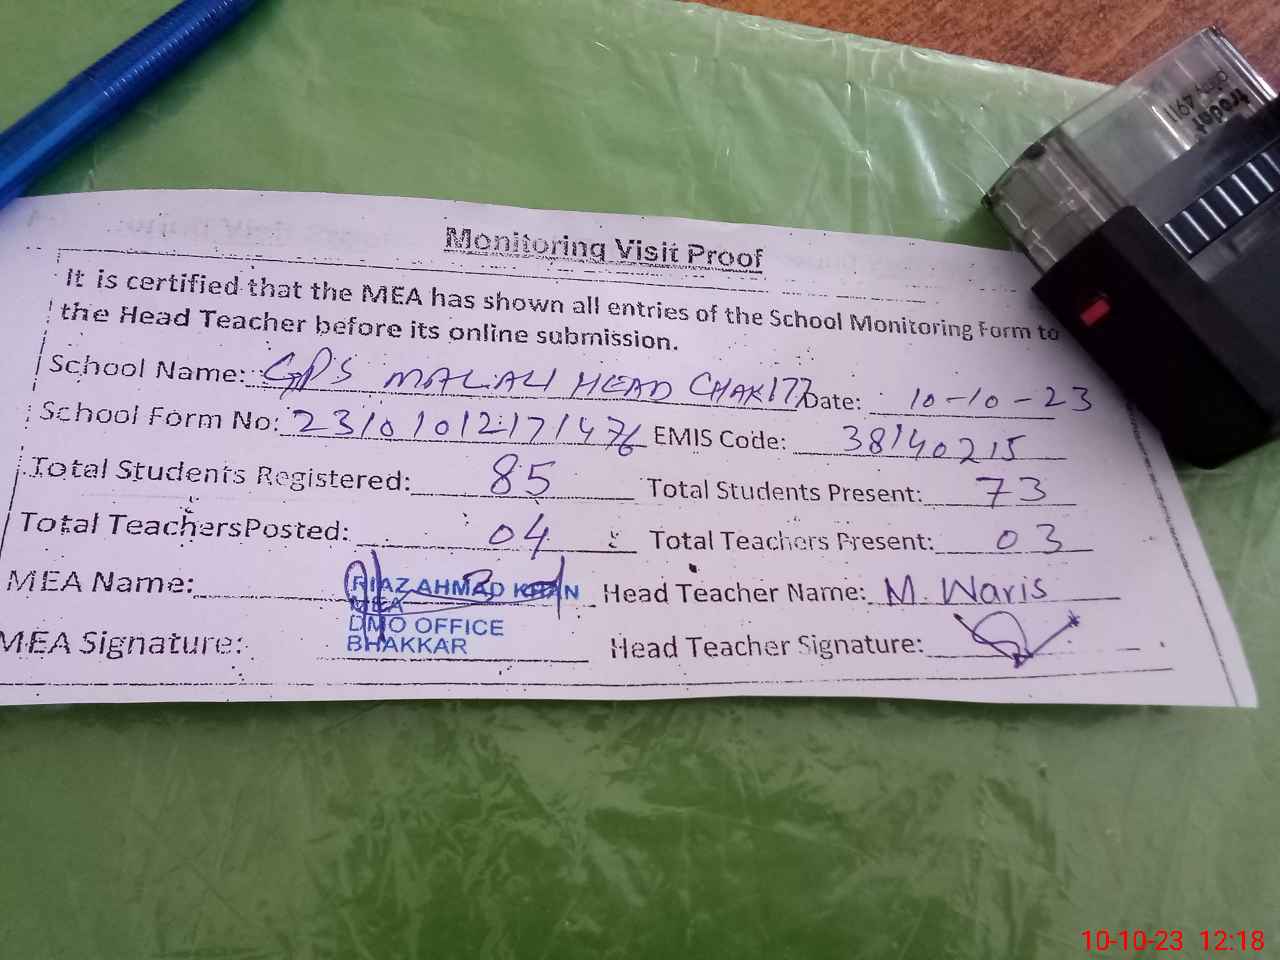 Monitoring Visit Proof
It is certified that the MEA has shown all entries of the School Monitoring Form to
the Head Teacher before its online submission.
School Name: GPS MALALI HEAD CHAK 177 Date: 10-10-23
School Form No: 23101012171476 EMIS Code: 38140215
Total Students Registered: 85 Total Students Present: 73
Total TeachersPosted: 04 Total Teachers Present: 03
MEA Name: RIAZ AHMAD KHAN Head Teacher Name: M. Waris
MEA
DMO OFFICE
MEA Signature: BHAKKAR Head Teacher Signature:
trodat
4911
10-10-23 12:18